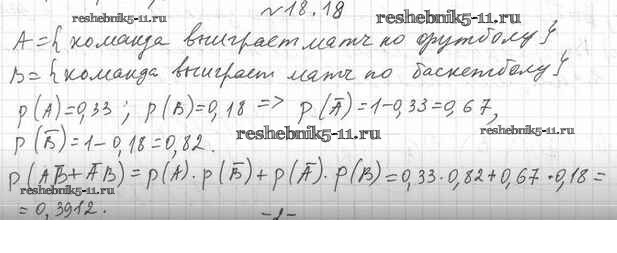 №18.18
reshebnik5-11.ru
reshebnik5-11.ru
A={команда выиграет матч по футболу}
B={команда выиграет матч по баскетболу}
p(A)=0,33; p(B)=0,18 => p(Ā)=1-0,33=0,67,
reshebnik5-11.ru
p(B̄)=1-0,18=0,82.
reshebnik5-11.ru
p(AB̄+ĀB)=p(A)·p(B̄)+p(Ā)·p(B)=0,33·0,82+0,67·0,18=
reshebnik5-11.ru
=0,3912.